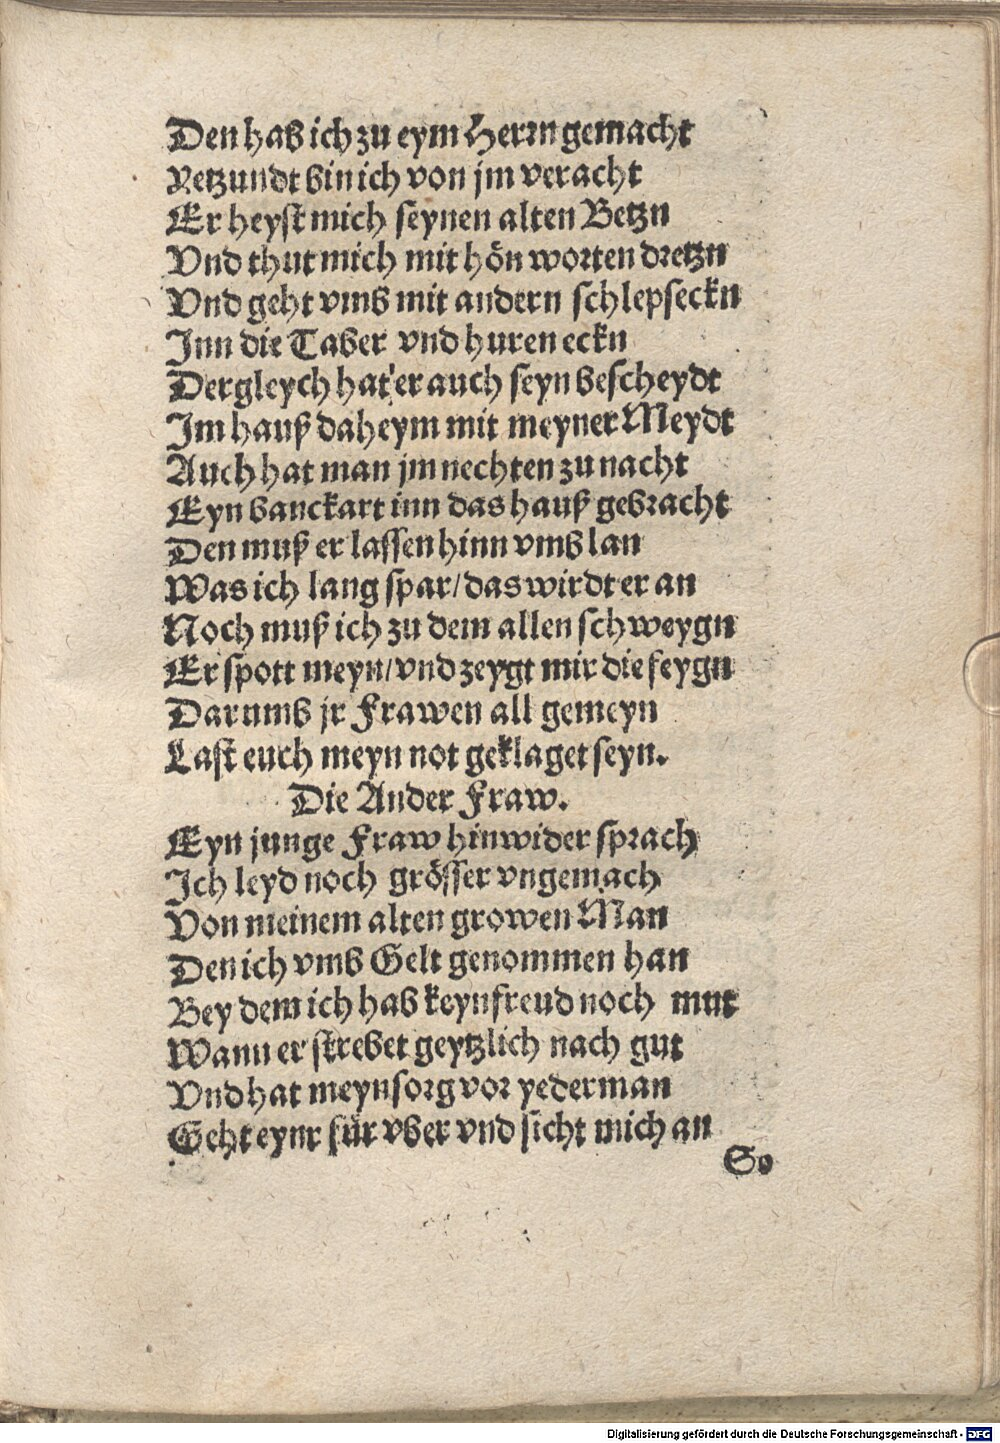 Den hab ich zu eym Herrn gemacht
Yetzundt bin ich von jm veracht
Er heyst mich seynen alten Betzn
Vnd thut mich mit hön worten dretzn
Vnd geht vmb mit andern schlepseckn
Inn die Taber vnd huren eckn
Dergleych hat er auch seyn bescheydt
Im hauß daheym mit meyner Meydt
Auch hat man jm nechten zu nacht
Eyn banckart inn das hauß gebracht
Den muß er lassen hinn vmb lan
Was ich lang spar/das wirdt er an
Noch muß ich zu dem allen schweygn
Er spott meyn/vnd zeygt mir die feygn
Darumb jr Frawen all gemeyn
Last euch meyn not geklaget seyn.
Die Ander Fraw.
Eyn junge Fraw hinwider sprach
Ich leyd noch grösser vngemach
Von meinem alten growen Man
Den ich vmb Gelt genommen han
Bey dem ich hab keyn freud noch mut
Wann er strebet geytzlich nach gut
Vnd hat meyn sorg vor yederman
Geht eynr für vber vnd sicht mich an
So
Digitalisierung gefördert durch die Deutsche Forschungsgemeinschaft - DFG